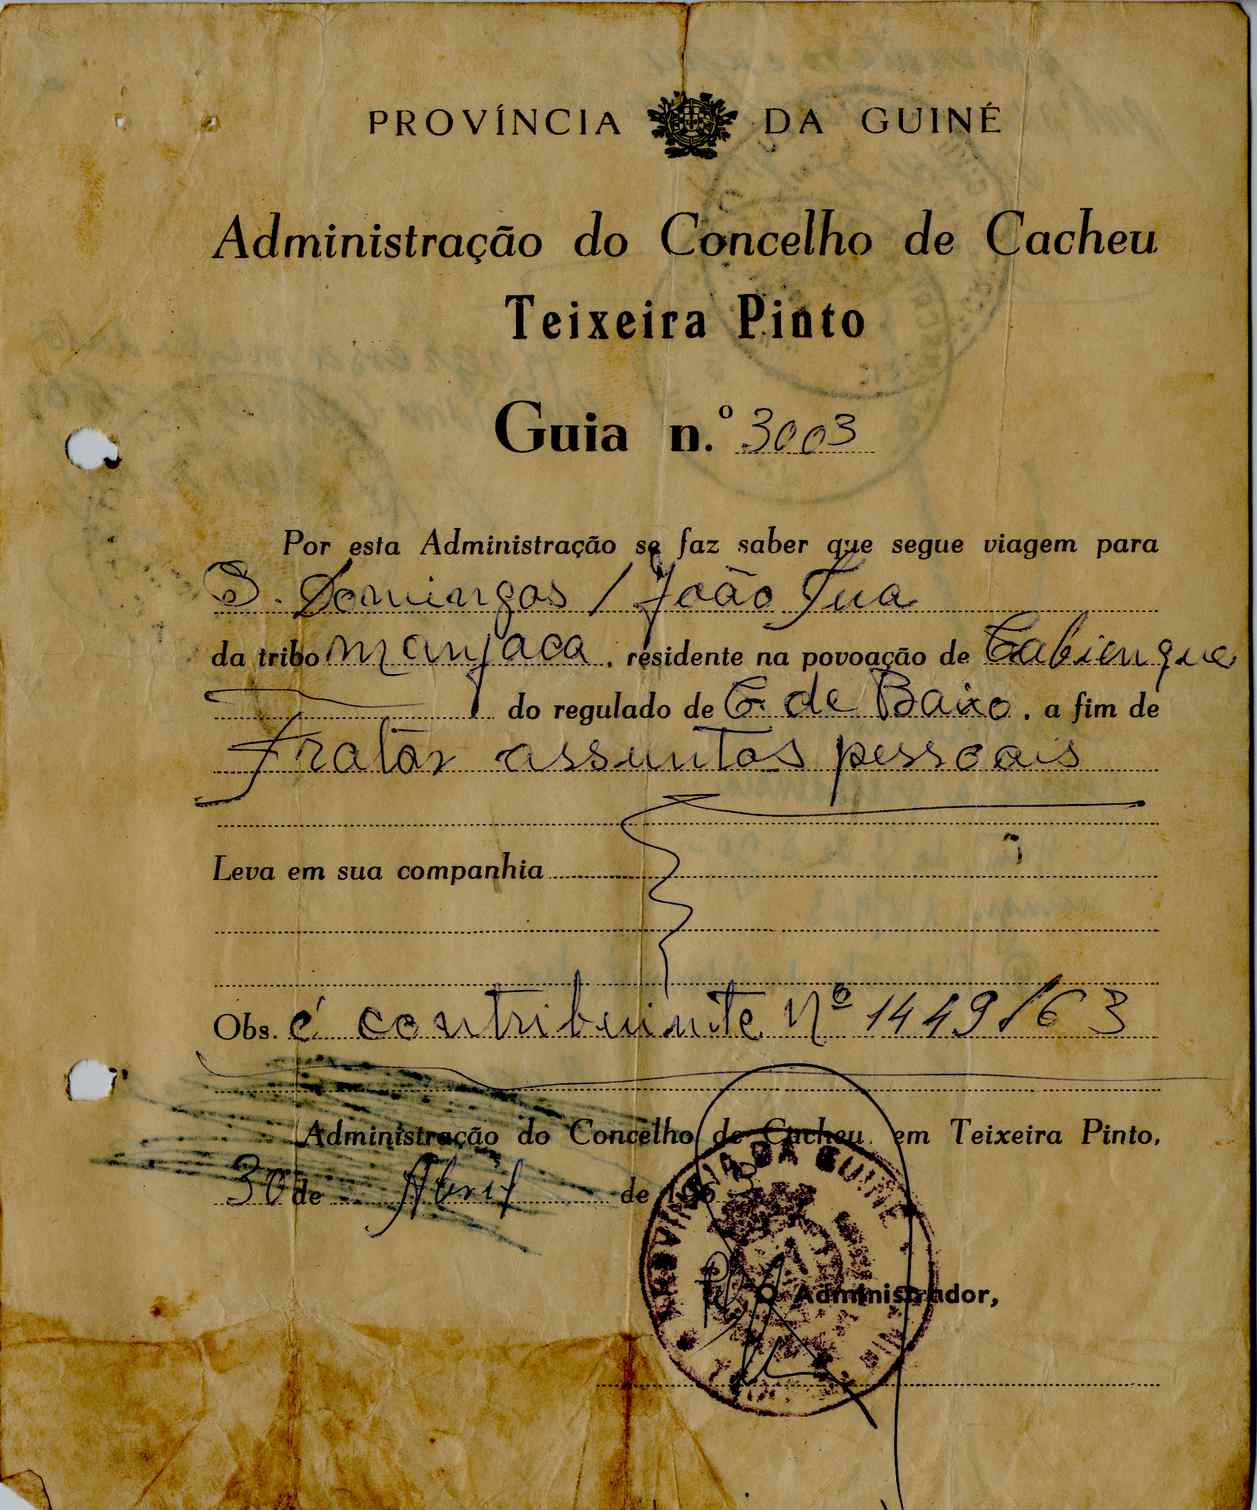 PROVÍNCIA DA GUINÉ
Administração do Concelho de Cacheu
Teixeira Pinto
Guia n.º 3003
Por esta Administração se faz saber que segue viagem para
S. Domingos / João Tua
da tribo manjaca, residente na povoação de Cabienque
do regulado de C. de Baixo, a fim de
tratar assuntos pessoais
Leva em sua companhia
Obs. é contribuinte Nº 1449/63
Administração do Concelho de Cacheu em Teixeira Pinto,
30 de Abril de 196
O Administrador,
PROVÍNCIA DA GUINÉ